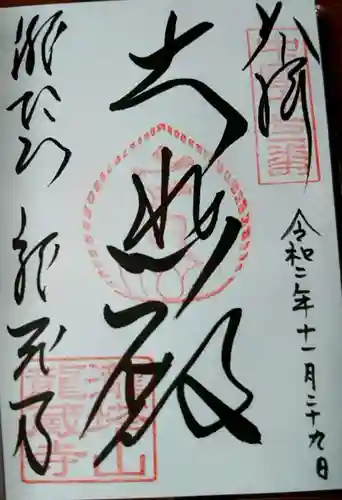 奉拝
令和二年十一月二十九日
大悲殿
龍蔵寺
瀧塔山
龍蔵寺